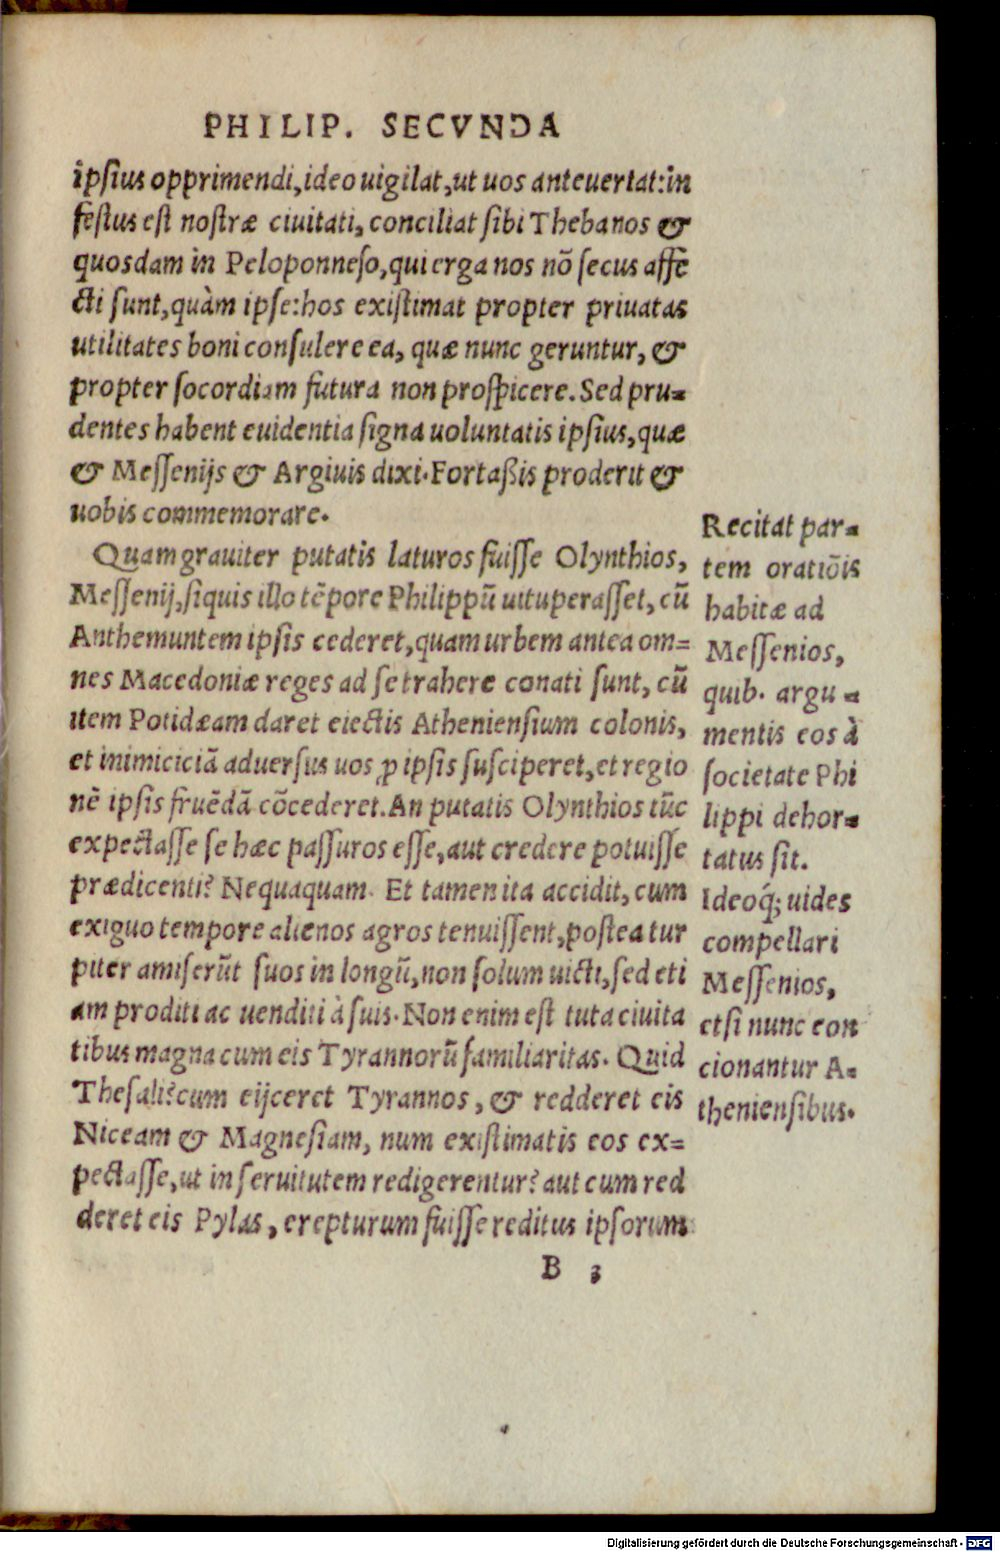 PHILIP. SECVNDA
ipsius opprimendi, ideo uigilat, ut uos anteuertat: in
festus est nostræ ciuitati, conciliat sibi Thebanos &
quosdam in Peloponneso, qui erga nos nõ secus affe
cti sunt, quàm ipse: hos existimat propter priuatas
utilitates boni consulere ea, quæ nunc geruntur, &
propter socordiam futura non prospicere. Sed pru=
dentes habent euidentia signa uoluntatis ipsius, quæ
& Messenijs & Argiuis dixi. Fortaßis proderit &
uobis commemorare.
Quam grauiter putatis laturos fuisse Olynthios,
Messenij, siquis illo tẽpore Philippũ uituperasset, cũ
Anthemuntem ipsis cederet, quam urbem antea om=
nes Macedoniæ reges ad se trahere conati sunt, cũ
item Potidæam daret eiectis Atheniensium colonis,
et inimiciciã aduersus uos ꝓ ipsis susciperet, et regio
nẽ ipsis fruẽdã cõcederet. An putatis Olynthios tũc
expectasse se hæc passuros esse, aut credere potuisse
prædicenti? Nequaquam. Et tamen ita accidit, cum
exiguo tempore alienos agros tenuissent, postea tur
piter amiserũt suos in longũ, non solum uicti, sed eti
am proditi ac uenditi à suis. Non enim est tuta ciuita
tibus magna cum eis Tyrannorũ familiaritas. Quid
Thesali? cum eijceret Tyrannos, & redderet eis
Niceam & Magnesiam, num existimatis eos ex=
pectasse, ut in seruitutem redigerentur? aut cum red
deret eis Pylas, erepturum fuisse reditus ipsorum
B 3
Recitat par=
tem oratiõis
habitæ ad
Messenios,
quib. argu=
mentis eos à
societate Phi
lippi dehor=
tatus sit.
Ideoq́; uides
compellari
Messenios,
etsi nunc con
cionantur A=
theniensibus.
Digitalisierung gefördert durch die Deutsche Forschungsgemeinschaft - DFG